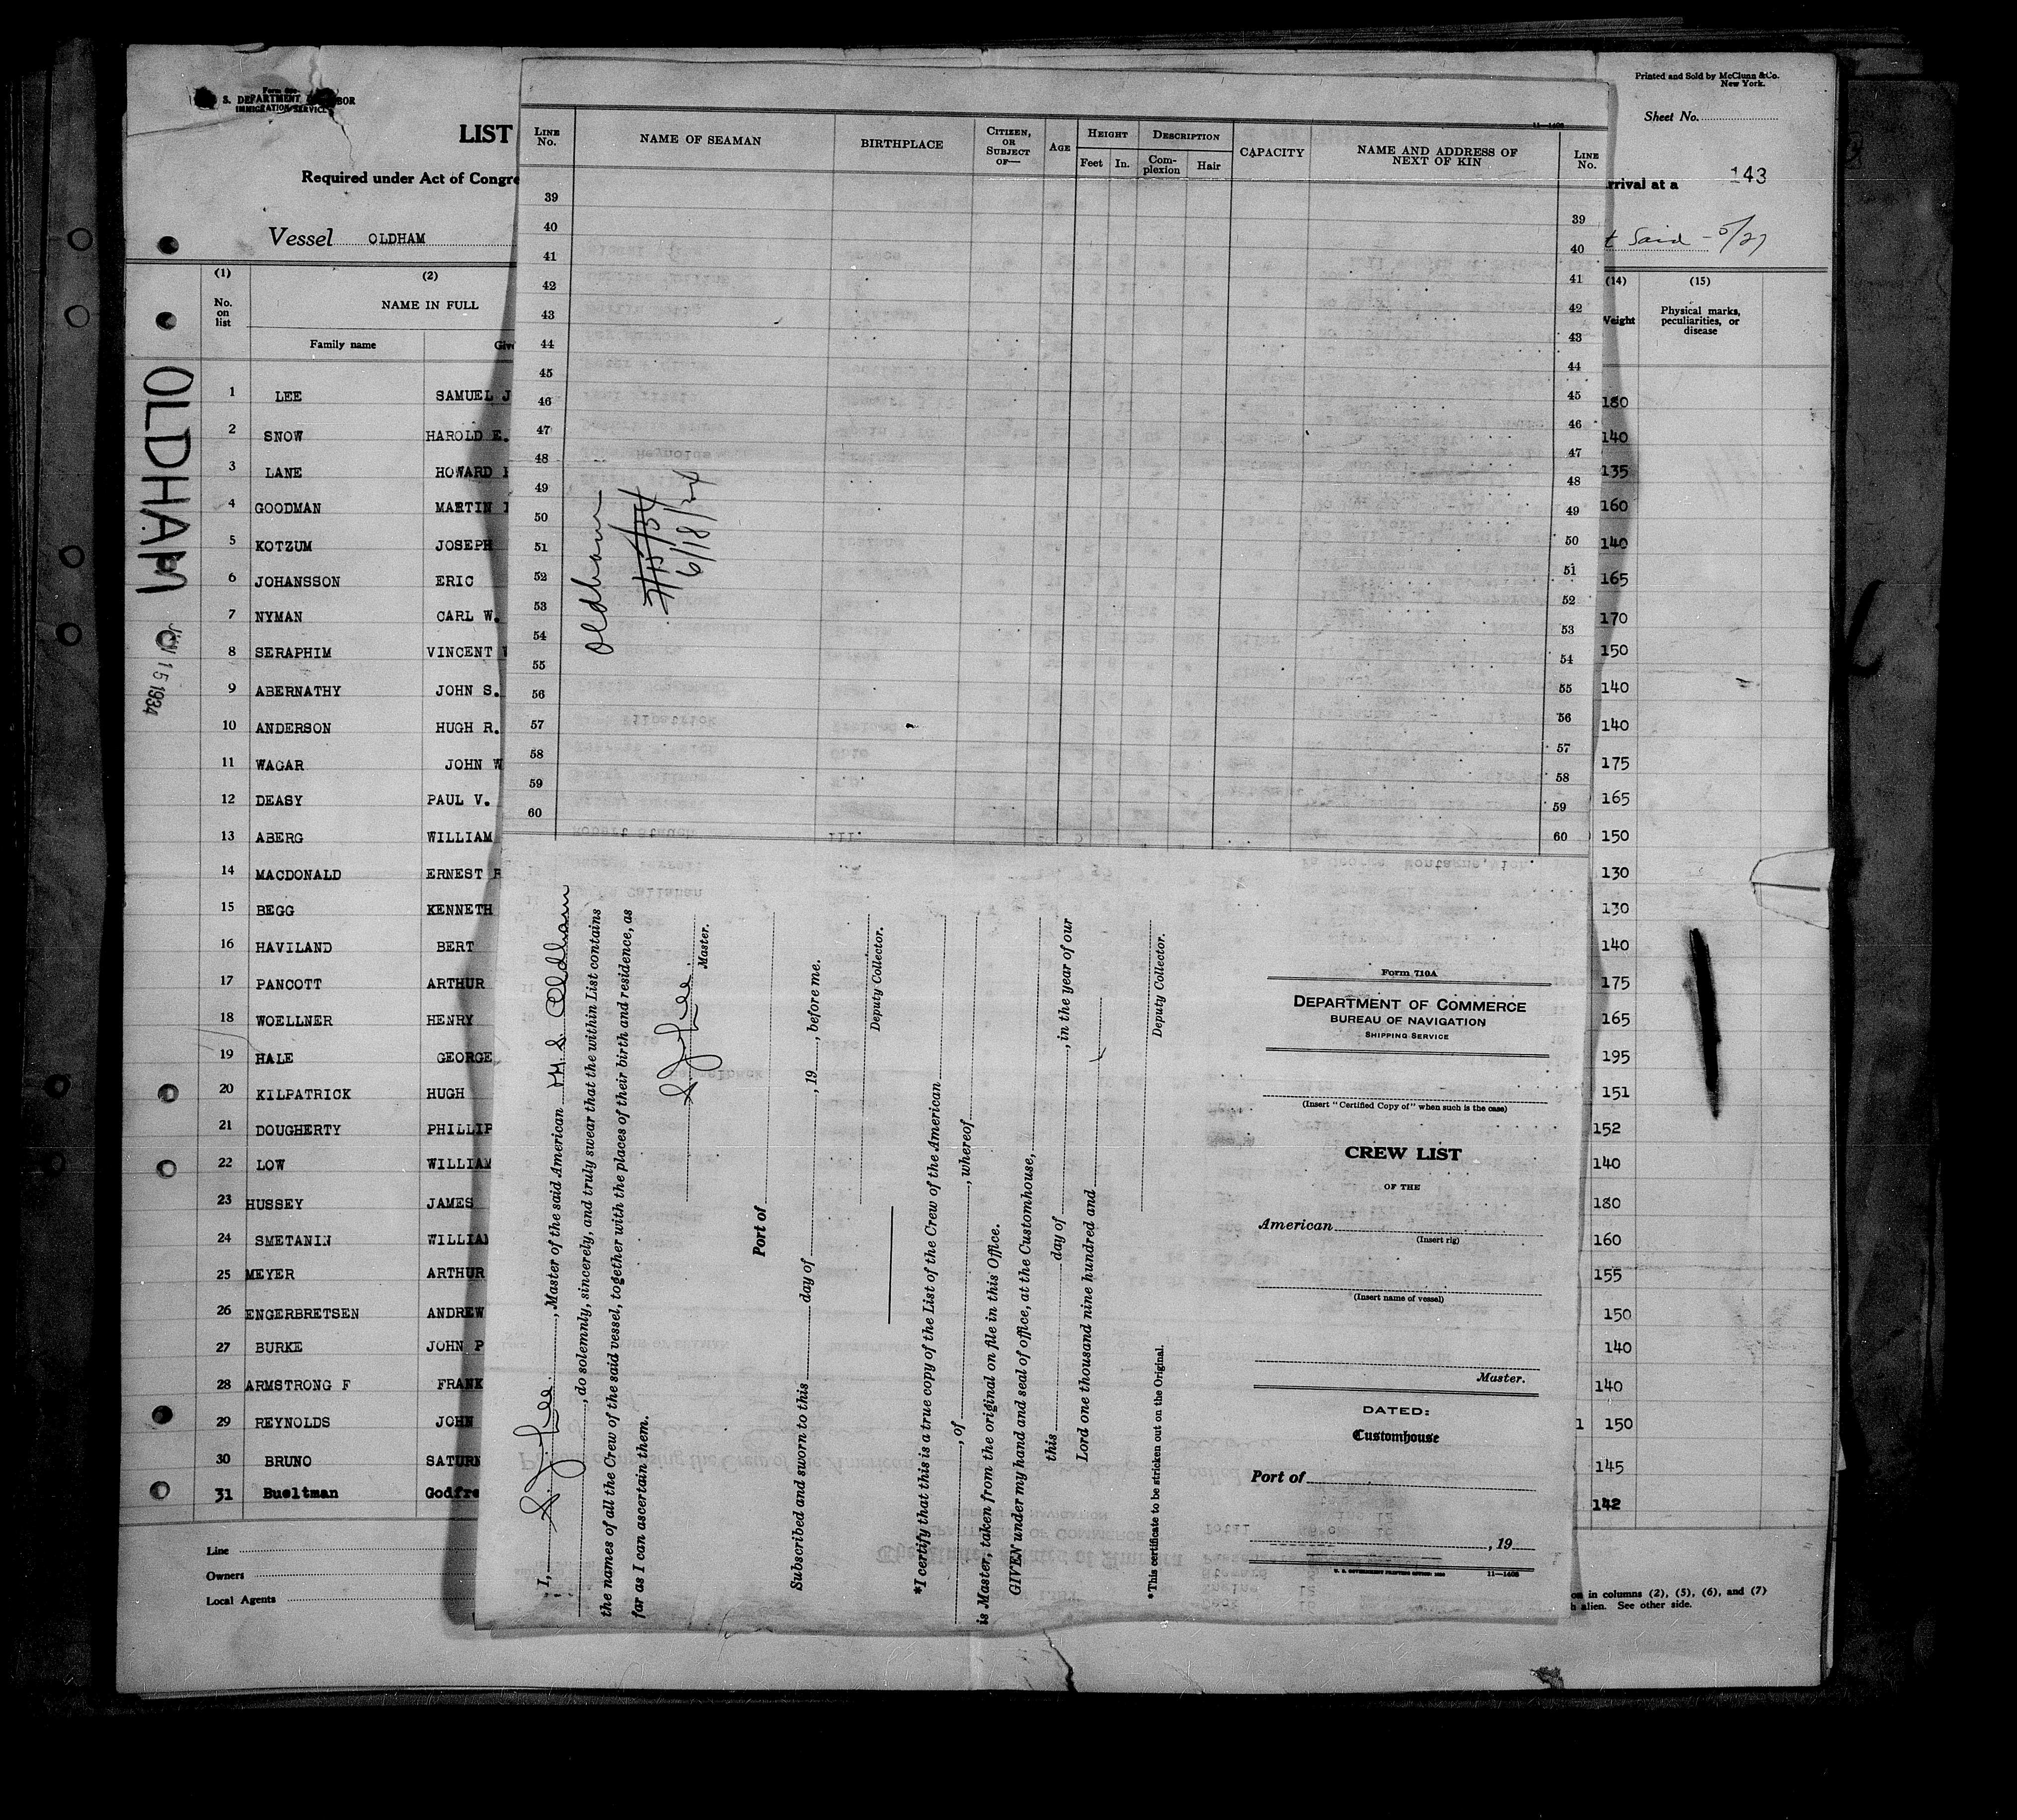 Form 689
S. DEPARTMENT OF LABOR
IMMIGRATION SERVICE
LIST
Required under Act of Congre
Vessel OLDHAM
(1)
(2)
No. on list
NAME IN FULL
Family name
Give
OLDHAM
JUN 15 1934
1 LEE SAMUEL J
2 SNOW HAROLD E.
3 LANE HOWARD
4 GOODMAN MARTIN
5 KOTZUM JOSEPH
6 JOHANSSON ERIC
7 NYMAN CARL W.
8 SERAPHIM VINCENT
9 ABERNATHY JOHN S.
10 ANDERSON HUGH R.
11 WAGAR JOHN W
12 DEASY PAUL V.
13 ABERG WILLIAM
14 MACDONALD ERNEST R
15 BEGG KENNETH
16 HAVILAND BERT
17 PANCOTT ARTHUR
18 WOELLNER HENRY
19 HALE GEORGE
20 KILPATRICK HUGH
21 DOUGHERTY PHILLIP
22 LOW WILLIAM
23 HUSSEY JAMES
24 SMETANIN WILLIAM
25 MEYER ARTHUR
26 ENGERBRETSEN ANDREW
27 BURKE JOHN P
28 ARMSTRONG F FRANK
29 REYNOLDS JOHN
30 BRUNO SATURN
31 Bueltman Godfre
Line
Owners
Local Agents
11—1406
LINE No.
NAME OF SEAMAN
BIRTHPLACE
CITIZEN, OR SUBJECT OF—
AGE
HEIGHT
Feet
In.
DESCRIPTION
Complexion
Hair
CAPACITY
NAME AND ADDRESS OF NEXT OF KIN
LINE No.
39 39
40 40
41 41
42 42
43 43
44 44
45 45
46 46
47 47
48 48
49 49
50 50
51 51
52 52
53 53
54 54
55 55
56 56
57 57
58 58
59 59
60 60
Oldham
7/15/34
6/18/34
I, S. J. Lee, Master of the said American M.S. Oldham
, do solemnly, sincerely, and truly swear that the within List contains
the names of all the Crew of the said vessel, together with the places of their birth and residence, as
far as I can ascertain them.
S. J. Lee
Master.
Port of
Subscribed and sworn to this day of , 19 , before me.
Deputy Collector.
*I certify that this is a true copy of the List of the Crew of the American
, of , whereof
is Master, taken from the original on file in this Office.
GIVEN under my hand and seal of office, at the Customhouse,
this day of , in the year of our
Lord one thousand nine hundred and
Deputy Collector.
*This certificate to be stricken out on the Original.
Form 710A
DEPARTMENT OF COMMERCE
BUREAU OF NAVIGATION
SHIPPING SERVICE
(Insert "Certified Copy of" when such is the case)
CREW LIST
OF THE
American
(Insert rig)
(Insert name of vessel)
Master.
DATED:
Customhouse
Port of
, 19
U. S. GOVERNMENT PRINTING OFFICE 11—1406
Printed and Sold by McClunn & Co.
New York.
Sheet No.
rrival at a 143
t Said - 5/27
(14)
(15)
Weight
Physical marks, peculiarities, or disease
180
140
135
160
140
165
170
150
140
140
175
165
150
130
130
140
175
165
195
151
152
140
180
160
155
150
140
140
1 150
145
142
on in columns (2), (5), (6), and (7)
h alien. See other side.